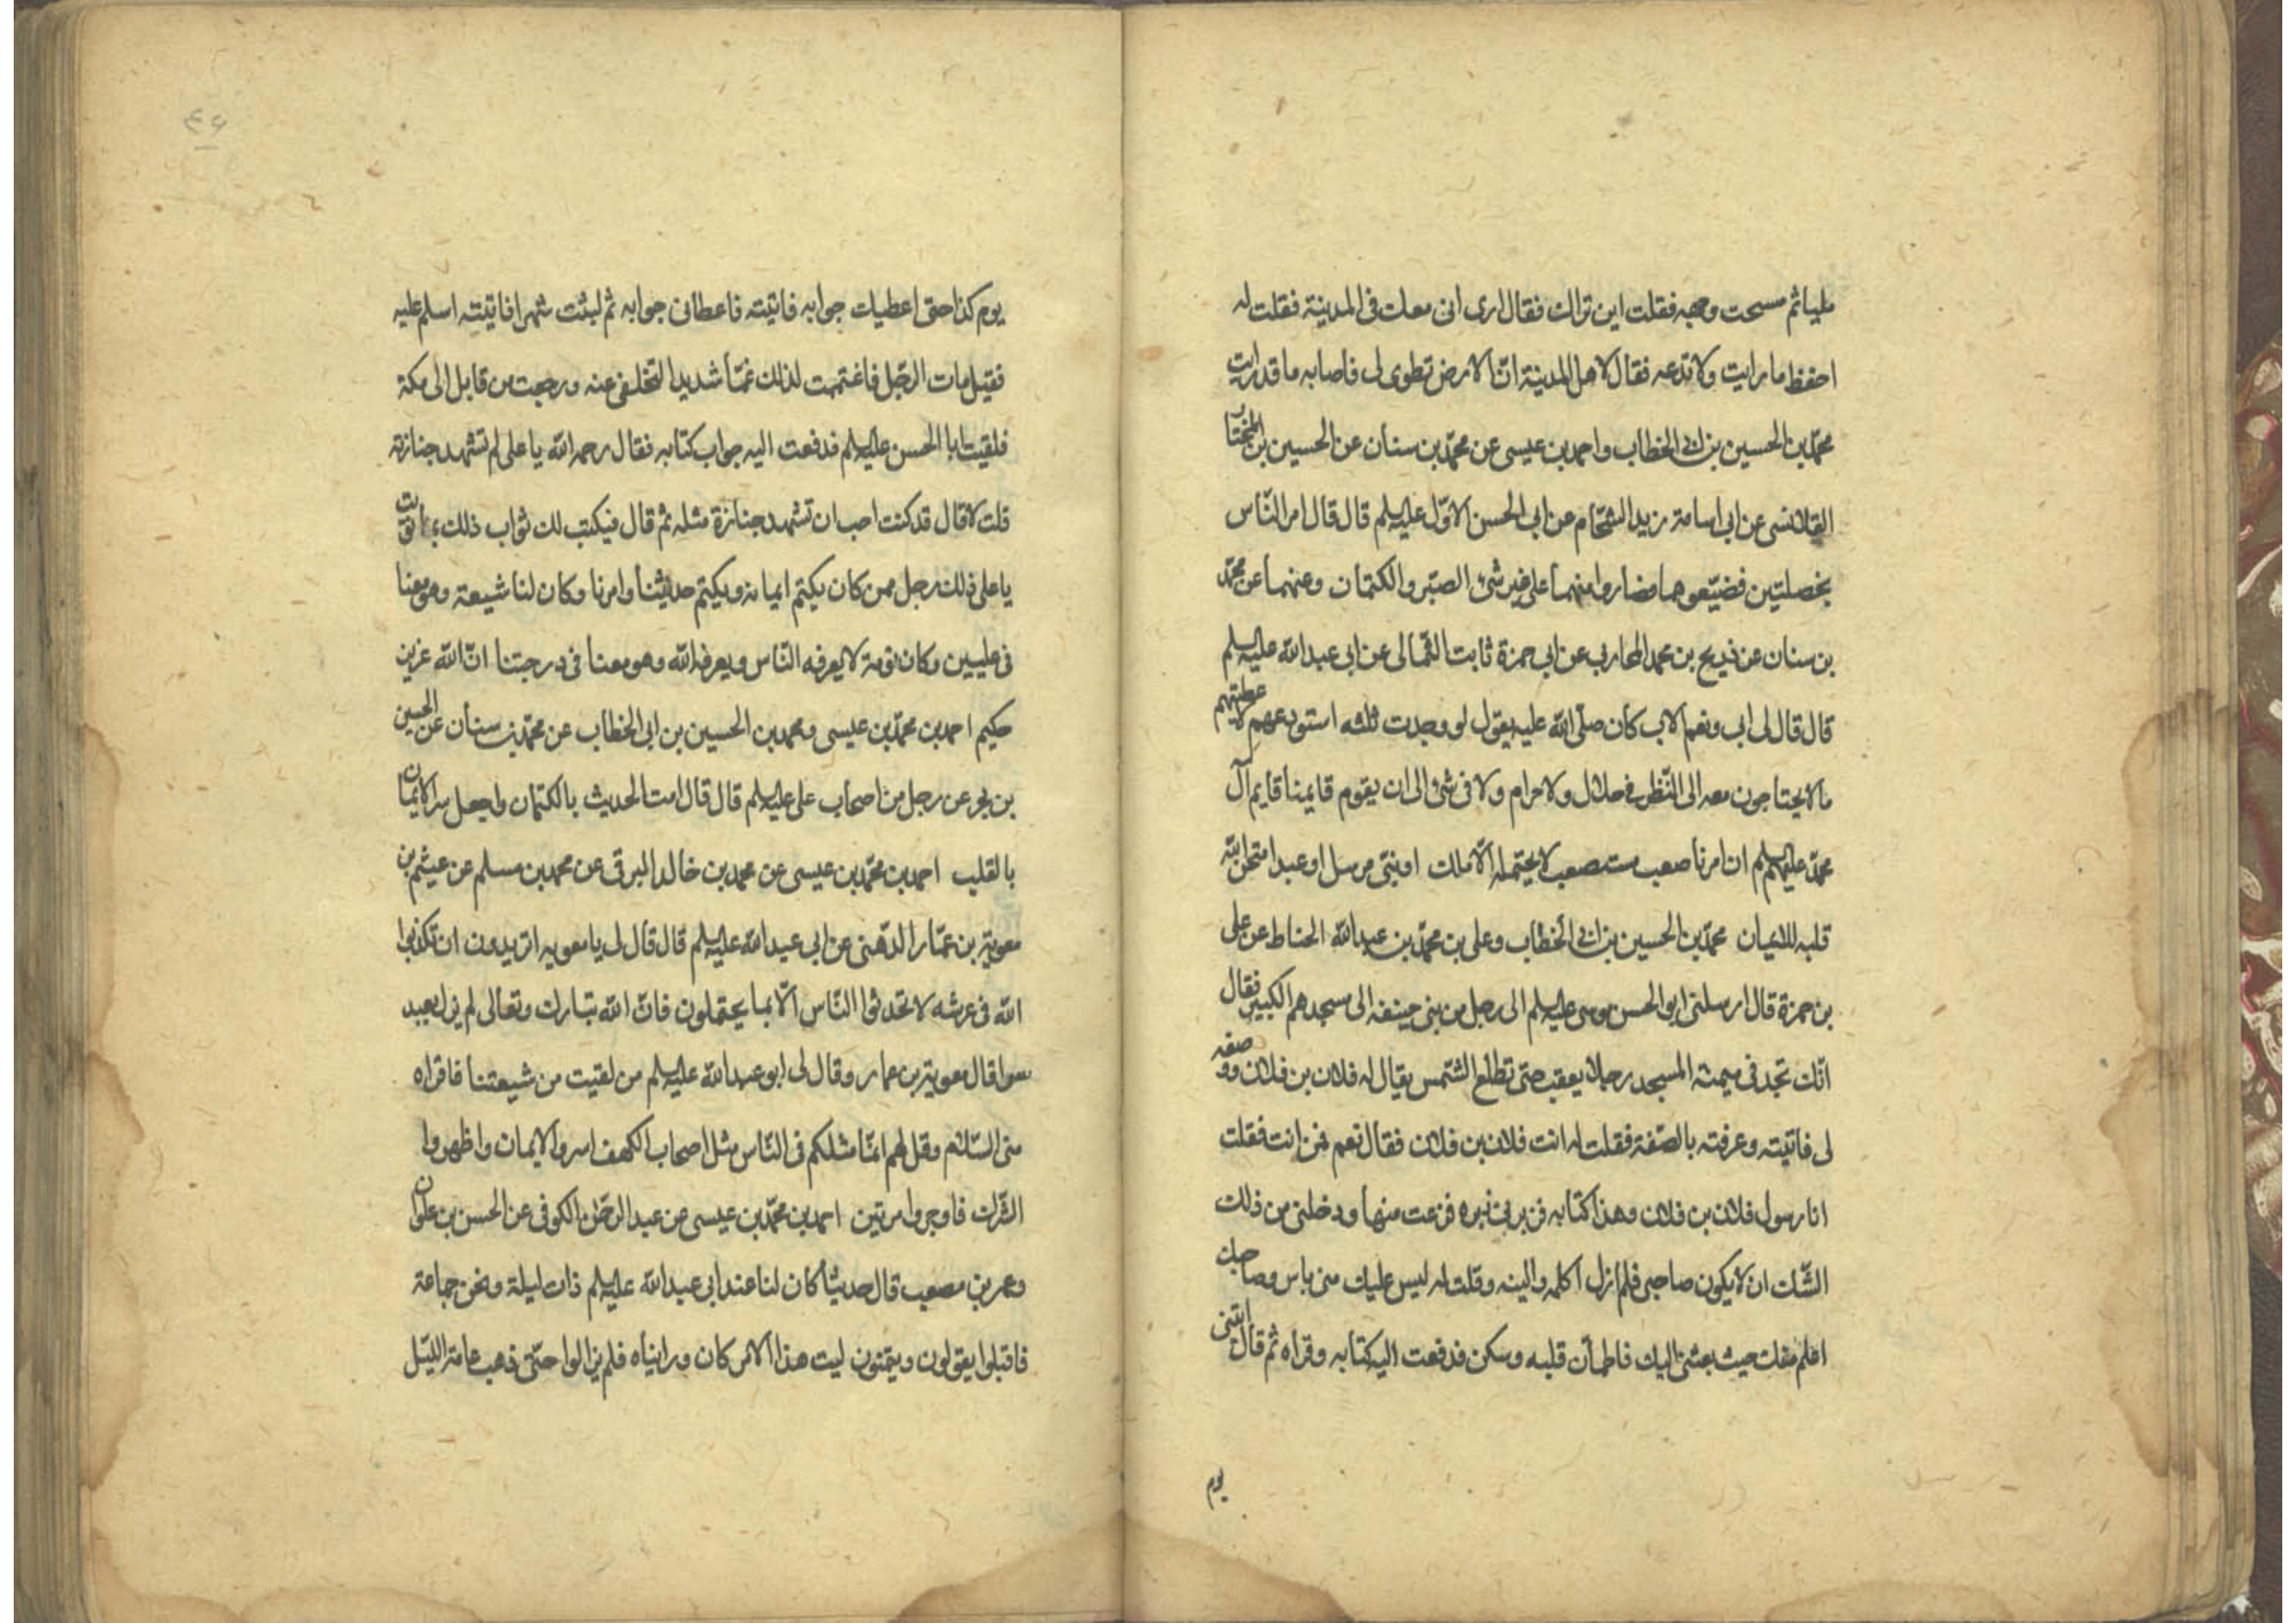 مليا ثم مسحت وجهه فقلت اين تراك فقال ارى انى معك فى المدينة فقلت له
احفظ ما رايت ولا تدعه فقال لاهل المدينة ان الارض تطوى لى فاصابه ما قد رايت
محمد بن الحسين بن ابى الخطاب واحمد بن عيسى عن محمد بن سنان عن الحسين بن المختار
القلانسى عن ابى اسامة زيد الشحام عن ابى الحسن الاول عليه السلم قال قال امر الناس
بخصلتين فضيعوهما فصاروا منهما على غير شئ الصبر والكتمان وعنهما عن محمد
بن سنان عن ذريح بن محمد المحاربى عن ابى حمزة ثابت الثمالى عن ابى عبد الله عليه السلم
قال قال لى ابى ونعم الاب كان صلى الله عليه يقول لو وجدت ثلثه استودعهم لاعطيتهم
ما لا يحتاجون معه الى النظر فى حلال ولا حرام ولا فى شئ الى ان يقوم قايمنا قايم آل
محمد عليهم السلم ان امرنا صعب مستصعب لا يحتمله الا ملك او نبى مرسل او عبد امتحن الله
قلبه للايمان محمد بن الحسين بن ابى الخطاب وعلى بن محمد بن عبد الله الحناط عن على
بن حمزة قال ارسلنى ابو الحسن موسى عليه السلم الى رجل من بنى حنيفه الى مسجدهم الكبير فقال
انك تجد فى ميمنة المسجد رجلا يعقب حتى تطلع الشمس يقال له فلان بن فلان ووصفه
لى فاتيته وعرفته بالصفة فقلت له انت فلان بن فلان فقال نعم فمن انت فقلت
انا رسول فلان بن فلان وهذا كتابه فزبرنى زبره فزعت منها ودخلنى من ذلك
الشك ان لا يكون صاحبى فلم ازل اكلمه والينه وقلت له ليس عليك منى باس وصاحبك
اعلم منك حيث بعثنى اليك فاطمأن قلبه وسكن فدفعت اليه كتابه وقراه ثم قال ايتنى
يوم
٤٦
يوم كذا حتى اعطيك جوابه فاتيته فاعطانى جوابه ثم لبثت شهرا فاتيته اسلم عليه
فقيل مات الرجل فاغتممت لذلك غما شديدا لتخلفى عنه ورجعت من قابل الى مكة
فلقيت ابا الحسن عليه السلم فدفعت اليه جواب كتابه فقال رحمه الله يا على لم تشهد جنازته
قلت لا قال قد كنت احب ان تشهد جنازة مثله ثم قال فيكتب لك ثواب ذلك بما نويت
يا على ذلك رجل ممن كان يكتم ايمانه ويكتم حديثنا وامرنا وكان لنا شيعة وهو معنا
فى عليين وكان نومة لا يعرفه الناس ويعرفه الله وهو معنا فى درجتنا ان الله عزيز
حكيم احمد بن محمد بن عيسى ومحمد بن الحسين بن ابى الخطاب عن محمد بن سنان عن الحسين
بن بحر عن رجل من اصحاب على عليه السلم قال قال امت الحديث بالكتمان واجعل سر الايمان
بالقلب احمد بن محمد بن عيسى عن محمد بن خالد البرقى عن محمد بن مسلم عن عيثم بن
معوية بن عمار الدهنى عن ابى عبد الله عليه السلم قال قال لى يا معويه اتريدون ان تكذبوا
الله فى عرشه لا تحدثوا الناس الا بما يحتملون فان الله تبارك وتعالى لم يزل يعبد
سرا قال معوية بن عمار وقال لى ابو عبد الله عليه السلم من لقيت من شيعتنا فاقراه
منى السلام وقل لهم انما مثلكم فى الناس مثل اصحاب الكهف اسروا الايمان واظهروا
الشرك فاوجروا مرتين احمد بن محمد بن عيسى عن عبد الرحمن الكوفى عن الحسن بن علوان
وعمر بن مصعب قال حديثا كان لنا عند ابى عبد الله عليه السلم ذات ليلة ونحن جماعة
فاقبلوا يقولون ويتمنون ليت هذا الامر كان وراٮناه فلم يزالوا حتى ذهب عامة الليل